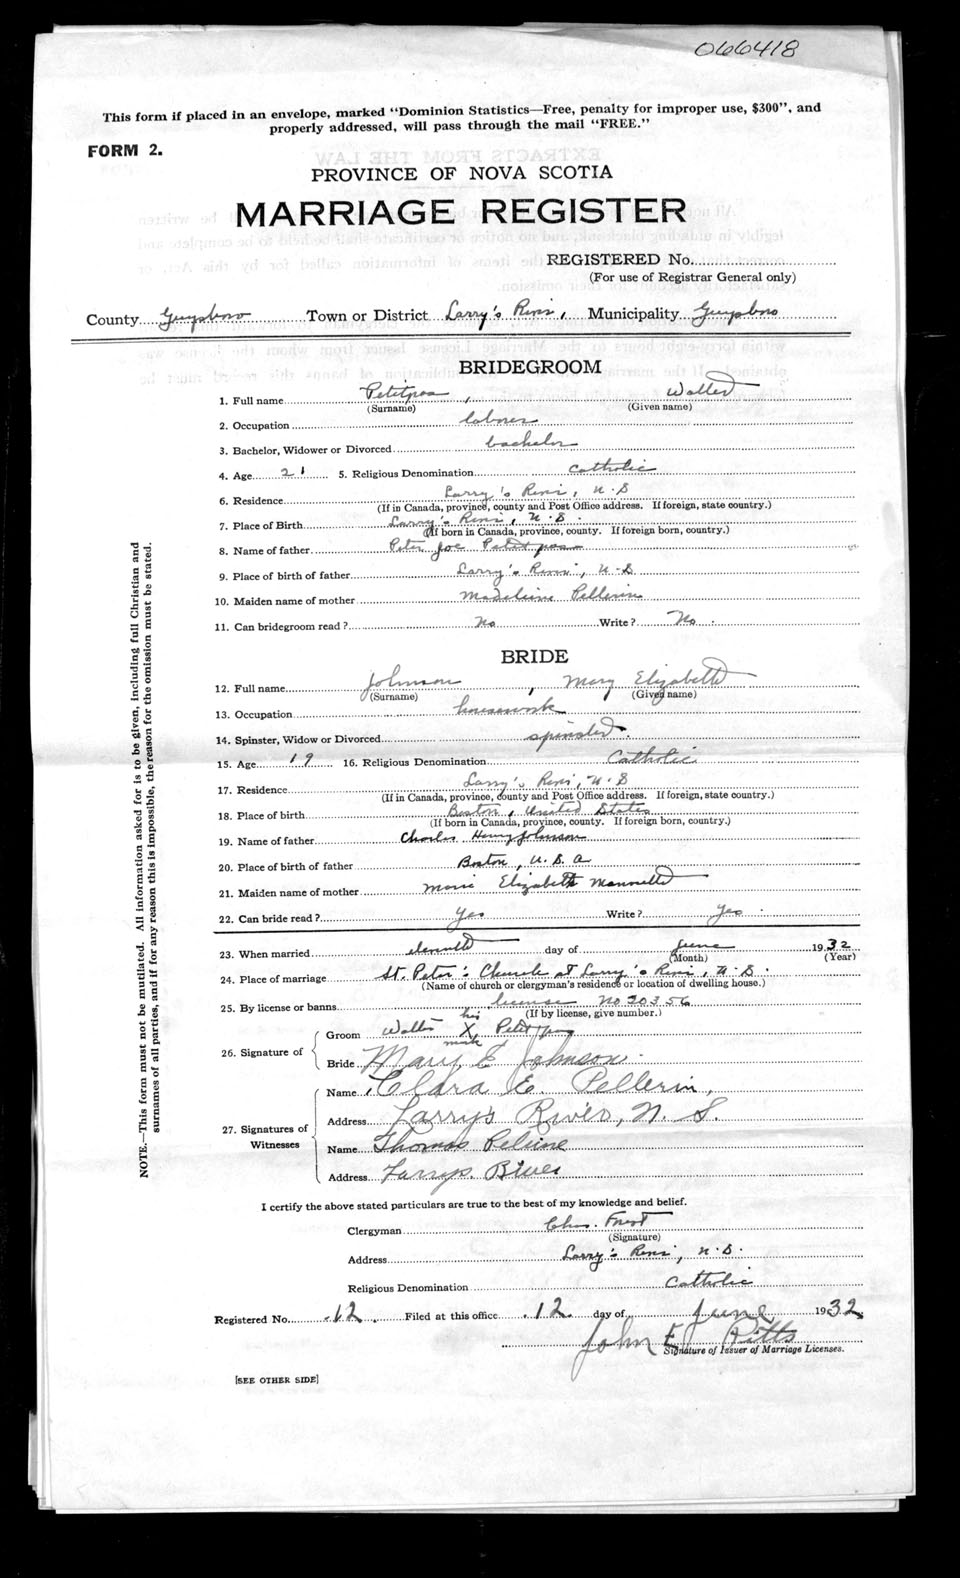 066418
This form if placed in an envelope, marked "Dominion Statistics—Free, penalty for improper use, $300", and
properly addressed, will pass through the mail "FREE."
FORM 2.
PROVINCE OF NOVA SCOTIA
MARRIAGE REGISTER
REGISTERED No.
(For use of Registrar General only)
County Guysboro Town or District Larry's River, Municipality Guysboro
BRIDEGROOM
1. Full name Petitpas, Walter
(Surname) (Given name)
2. Occupation laborer
3. Bachelor, Widower or Divorced bachelor
4. Age 21 5. Religious Denomination Catholic
6. Residence Larry's River, N.S
(If in Canada, province, county and Post Office address. If foreign, state country.)
7. Place of Birth Larry's River, N.S.
(If born in Canada, province, county. If foreign born, country.)
8. Name of father Peter Joe Petitpas
9. Place of birth of father Larry's River, N.S.
10. Maiden name of mother Madeleine Pellerin
11. Can bridegroom read? No Write? No.
BRIDE
12. Full name Johnson, Mary Elizabeth
(Surname) (Given name)
13. Occupation housework
14. Spinster, Widow or Divorced spinster.
15. Age 19 16. Religious Denomination Catholic
17. Residence Larry's River, N.S
(If in Canada, province, county and Post Office address. If foreign, state country.)
18. Place of birth Boston, United States
(If born in Canada, province, county. If foreign born, country.)
19. Name of father Charles Henry Johnson
20. Place of birth of father Boston, U.S.A
21. Maiden name of mother Marie Elizabeth
22. Can bride read? Yes Write? Yes.
23. When married day of June 1932
(Month) (Year)
24. Place of marriage St. Peter's Church at Larry's River, N.S.
(Name of church or clergyman's residence or location of dwelling house.)
25. By license or banns license No 20356
(If by license, give number.)
26. Signature of
Groom Walter his X mark Petitpas
Bride Mary E Johnson.
27. Signatures of Witnesses
Name Clara E. Pellerin,
Address Larrys River, N. S.
Name Thomas
Address Larrys River
I certify the above stated particulars are true to the best of my knowledge and belief.
Clergyman Chas. Forest
(Signature)
Address Larry's River, N.S.
Religious Denomination Catholic
Registered No. 12. Filed at this office 12 day of June 1932
John E Pitts
Signature of Issuer of Marriage Licenses.
[SEE OTHER SIDE]
NOTE.—This form must not be mutilated. All information asked for is to be given, including full Christian and
surnames of all parties, and if for any reason this is impossible, the reason for the omission must be stated.